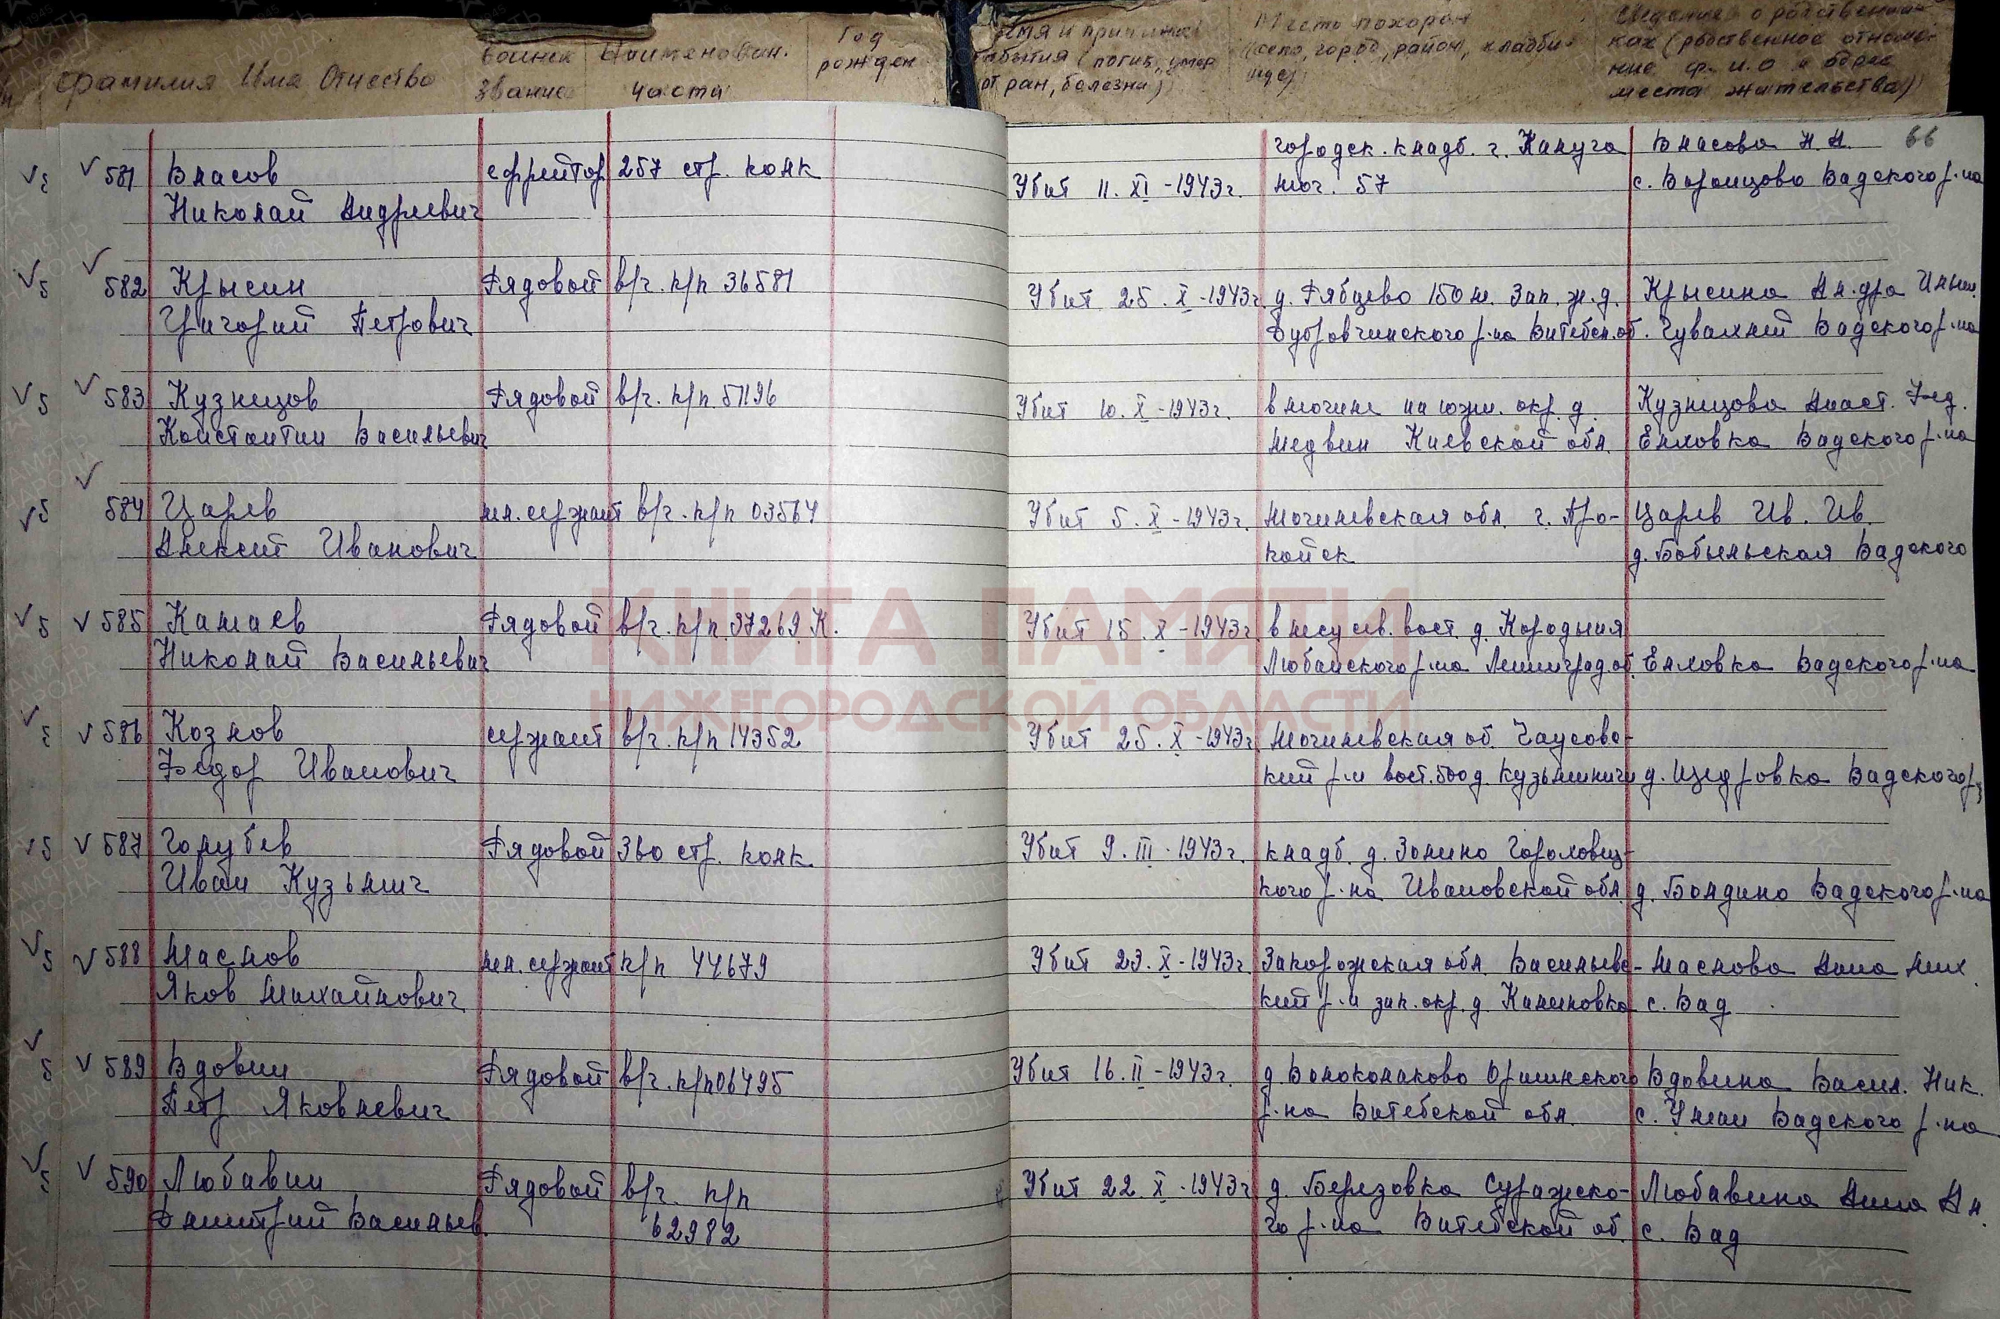 Фамилия Имя Отчество
Воинск звание
Наименован. части
Год рожден
Время и причина события (погиб, умер от ран, болезни)
Место похорон (село, город, район, кладбище)
Сведения о родственниках (родственное отноше-
ние ф. и. о и
места жительства)
66
581 Власов ефрейтор 257 стр. полк Убит 11. XI - 1943г. городск. кладб. г. Калуга Власова Н. А.
Николай Андреевич мог. 57 с. Воронцово Вадского р-на
582 Крысин Рядовой в/ч. п/п 36581 Убит 25. X - 1943г. д. Рябцево 150 м. зап. ж. д. Крысина
Григорий Петрович Дубровчинского р-на Витебск. об. Чувахлей Вадского р-на
583 Кузнецов Рядовой в/ч. п/п 51196 Убит 10. X - 1943г. в могиле на южн. окр. д. Кузнецова Анаст. Фед.
Константин Васильевич Медвин Киевской обл. Елховка Вадского р-на
584 Царев мл. сержант в/ч. п/п 03564 Убит 5. X - 1943г. Могилевская обл. г. Про- Царев Ив. Ив.
Алексей Иванович пойск д. Бобыльская Вадского
585 Камаев Рядовой в/ч. п/п 37269 К. Убит 15. X - 1943г. в лесу сев. вост. д. Кородыня
Николай Васильевич Любанского р-на Ленинград об. Елховка Вадского р-на
586 Козлов сержант в/ч. п/п 14352 Убит 25. X - 1943г. Могилевская об. Чаусовс-
Федор Иванович кий р-н вост. 500 д. Кузьминичи д. Щедровка Вадского р
587 Голубев Рядовой 360 стр. полк. Убит 9. III - 1943г. кладб. д. Золино Гороховец-
Иван Кузьмич кого р-на Ивановской обл. д. Болдино Вадского р-на
588 Маслов мл. сержант п/п 44679 Убит 23. X - 1943г. Запорожская обл. Васильевс- Маслова Анна Мих.
Яков Михайлович кий р-н зап. окр. д. Калиновка с. Вад
589 Вдовин Рядовой в/ч. п/п 06495 Убит 16. II - 1943г. д. Волоколаково Оршинского Вдовина Васил. Ник.
Петр Яковлевич р-на Витебской обл. с. Умай Вадского р-на
590 Любавин Рядовой в/ч. п/п Убит 22. X - 1943г. д. Березовка Суражско- Любавина Анна Ал.
Дмитрий Васильев. 62982 го р-на Витебской об. с. Вад
КНИГА ПАМЯТИ
НИЖЕГОРОДСКОЙ ОБЛАСТИ